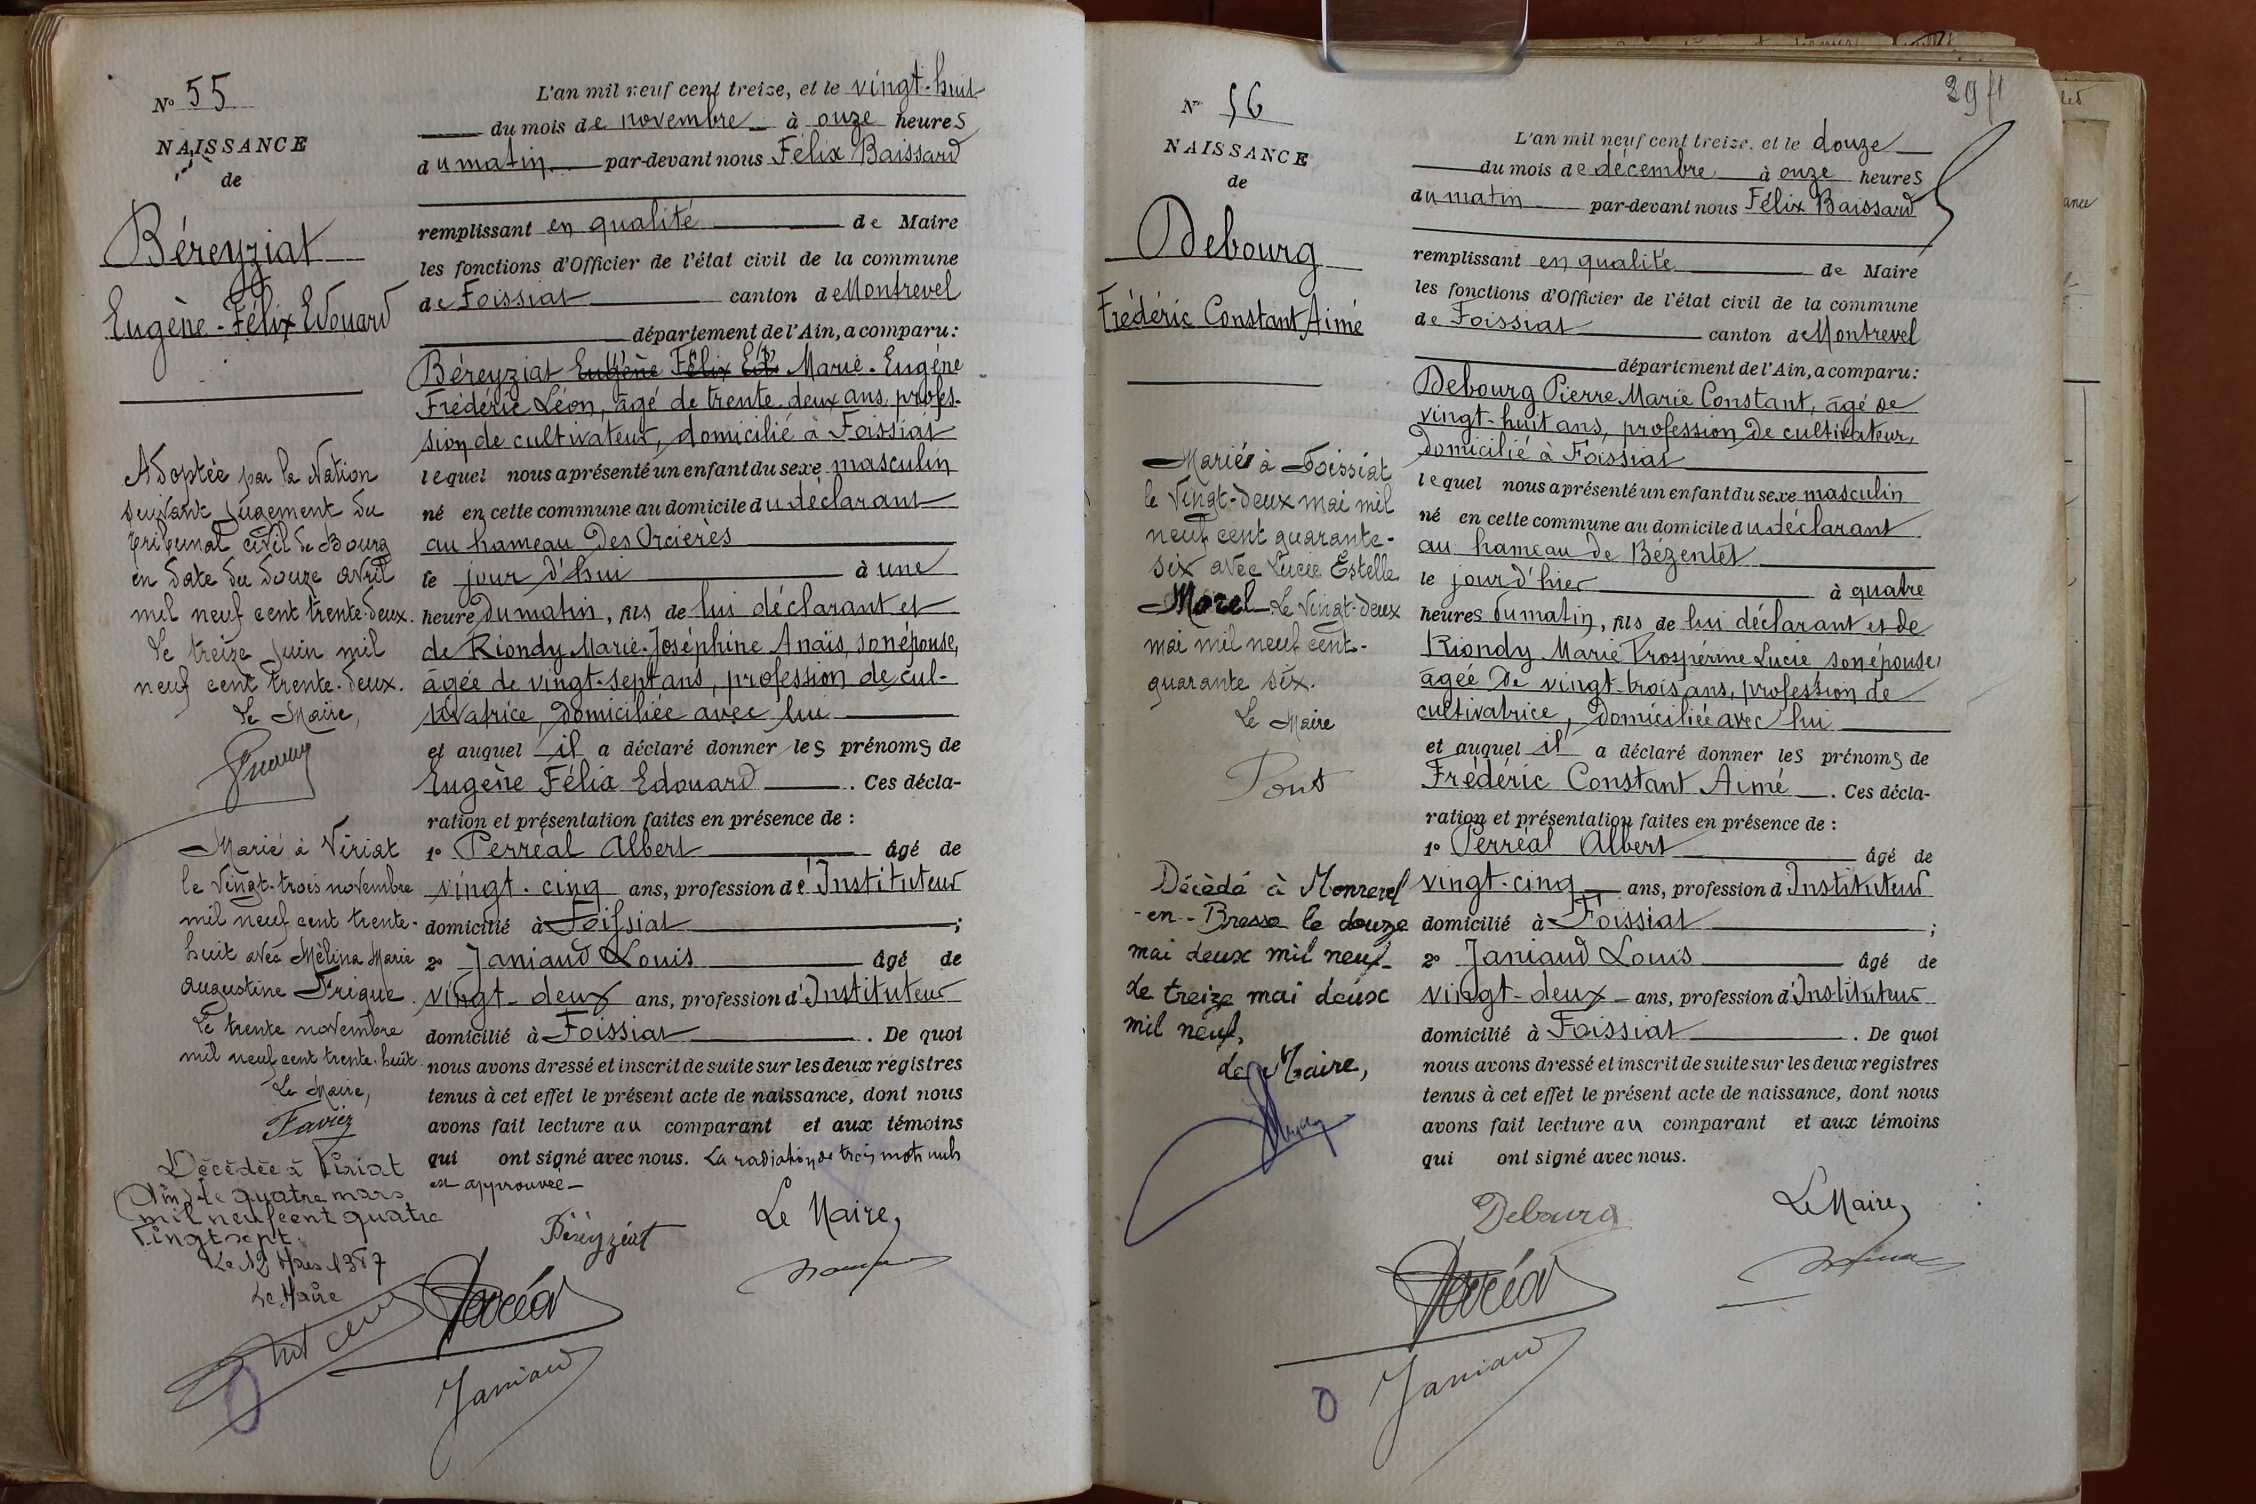 N° 55
NAISSANCE
de
Béreyziat
Eugène-Félix Edouard
Adoptée par la Nation
suivant jugement du
tribunal civil de Bourg
en date du douze avril
mil neuf cent trente-deux.
Le treize juin mil
neuf cent trente-deux.
Le Maire,
Marié à Viriat
le vingt-trois novembre
mil neuf cent trente-
huit avec Mélina Marie
Augustine Frigue.
Le trente novembre
mil neuf cent trente-huit
Le Maire,
Favier
Décédée à Viriat
(Ain) le quatre mars
mil neuf cent quatre
vingt sept.
Le 12 Mars 1987
Le Maire
L'an mil neuf cent treize, et le vingt-huit
du mois de novembre à onze heures
du matin par-devant nous Félix Baissard
remplissant en qualité de Maire
les fonctions d'Officier de l'état civil de la commune
de Foissiat canton de Montrevel
département de l'Ain, a comparu :
Béreyziat Eugène Félix Ed. Marie-Eugène
Frédéric Léon, âgé de trente deux ans, profes-
sion de cultivateur, domicilié à Foissiat
lequel nous a présenté un enfant du sexe masculin
né en cette commune au domicile du déclarant
au hameau des Orcières
le jour d'hui à une
heure du matin, fils de lui déclarant et
de Riondy Marie-Joséphine Anaïs, son épouse,
âgée de vingt-sept ans, profession de cul-
tivatrice, domiciliée avec lui
et auquel il a déclaré donner les prénoms de
Eugène Félix Edouard. Ces décla-
ration et présentation faites en présence de :
1° Perréal Albert âgé de
vingt-cinq ans, profession d'Instituteur
domicilié à Foissiat ;
2° Janiaud Louis âgé de
vingt-deux ans, profession d'Instituteur
domicilié à Foissiat. De quoi
nous avons dressé et inscrit de suite sur les deux registres
tenus à cet effet le présent acte de naissance, dont nous
avons fait lecture au comparant et aux témoins
qui ont signé avec nous. La radiation de trois mots nuls
est approuvée-
Béréyziat
Le Maire,
Perréal
Janiaud
294
N° 56
NAISSANCE
de
Debourg
Frédéric Constant Aimé
Marié à Foissiat
le vingt-deux mai mil
neuf cent quarante-
six avec Lucie Estelle
Morel. Le vingt-deux
mai mil neuf cent-
quarante six.
Le Maire
Pont
Décédé à Monrevel
-en-Bresse le douze
mai deux mil neuf-
Le treize mai deux
mil neuf,
Le Maire,
L'an mil neuf cent treize, et le douze
du mois de décembre à onze heures
du matin par-devant nous Félix Baissard
remplissant en qualité de Maire
les fonctions d'Officier de l'état civil de la commune
de Foissiat canton de Montrevel
département de l'Ain, a comparu :
Debourg Pierre Marie Constant, âgé de
vingt-huit ans, profession de cultivateur,
domicilié à Foissiat
lequel nous a présenté un enfant du sexe masculin
né en cette commune au domicile du déclarant
au hameau de Bézentet
le jour d'hier à quatre
heures du matin, fils de lui déclarant et de
Riondy Marie Prospérine Lucie son épouse,
âgée de vingt-trois ans, profession de
cultivatrice, domiciliée avec lui
et auquel il a déclaré donner les prénoms de
Frédéric Constant Aimé. Ces décla-
ration et présentation faites en présence de :
1° Perréal Albert âgé de
vingt-cinq ans, profession d'Instituteur
domicilié à Foissiat ;
2° Janiaud Louis âgé de
vingt-deux ans, profession d'Instituteur
domicilié à Foissiat. De quoi
nous avons dressé et inscrit de suite sur les deux registres
tenus à cet effet le présent acte de naissance, dont nous
avons fait lecture au comparant et aux témoins
qui ont signé avec nous.
Debourg
Le Maire,
Perréal
Janiaud